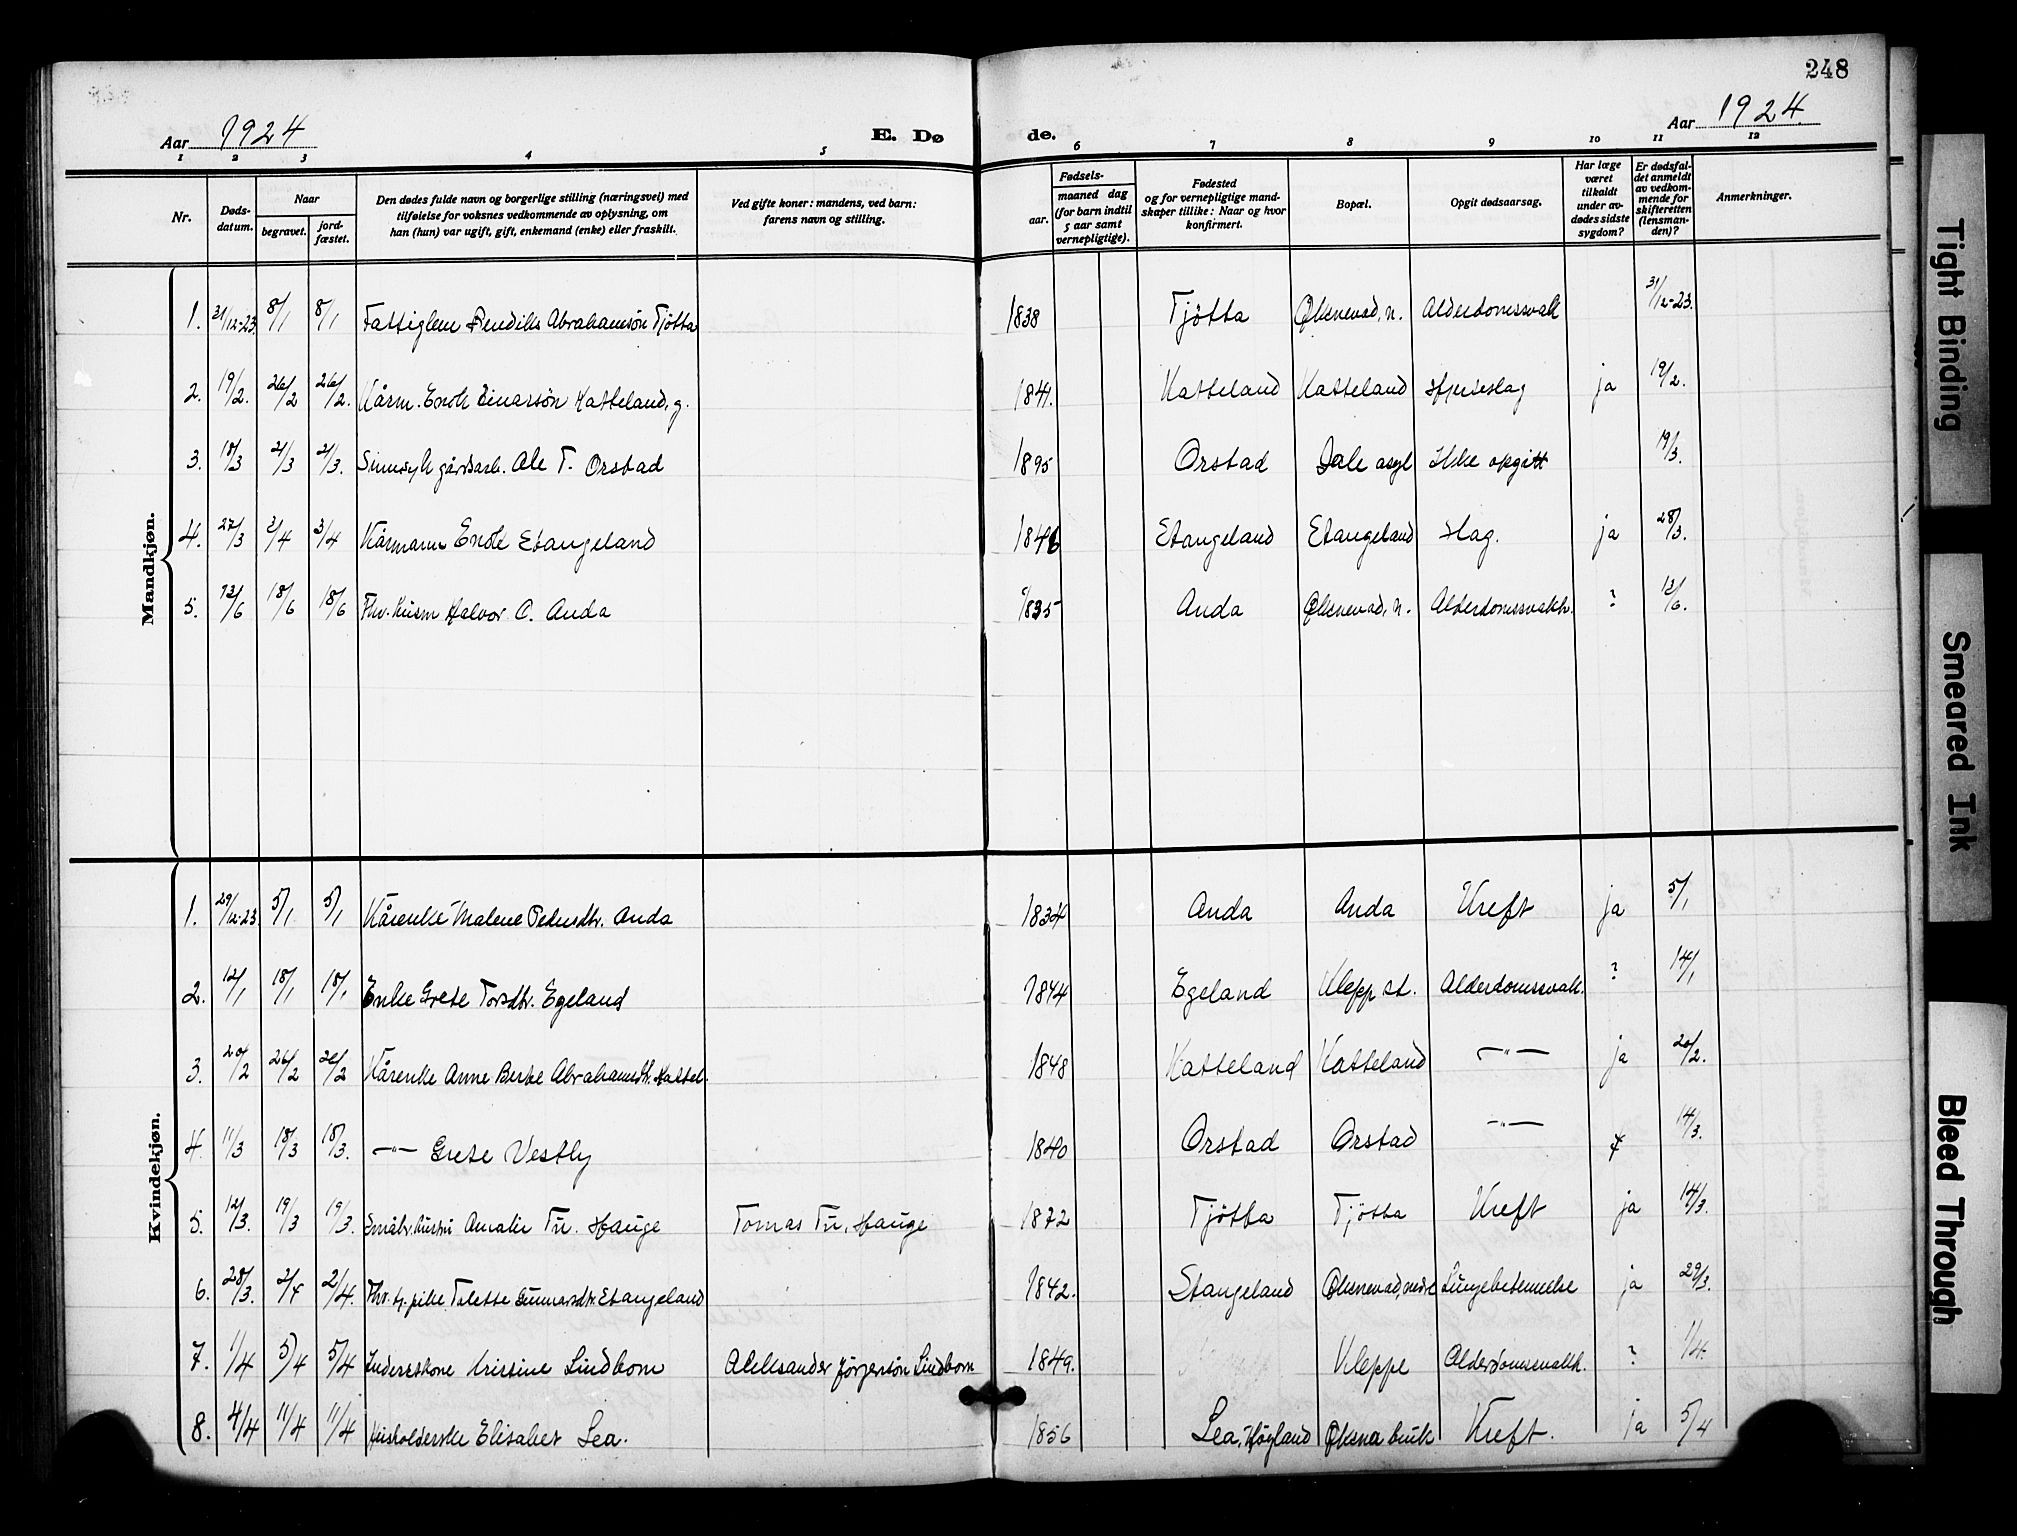 248
Aar 1924
E. Dø
de.
Aar 1924.
1 2 3 4 5 6 7 8 9 10 11 12
Nr.
Døds-
datum.
Naar
begravet.
jord-
fæstet.
Den dødes fulde navn og borgerlige stilling (næringsvei) med
tilføielse for voksnes vedkommende av oplysning, om
han (hun) var ugift, gift, enkemand (enke) eller fraskilt.
Ved gifte koner: mandens, ved barn:
farens navn og stilling.
Fødsels-
aar.
maaned dag
(for barn indtil
5 aar samt
vernepligtige).
Fødested
og for vernepligtige mand-
skaper tillike: Naar og hvor
konfirmert.
Bopæl.
Opgit dødsaarsag.
Har læge
været
tilkaldt
under av-
dødes sidste
sygdom?
Er dødsfal-
det anmeldt
av vedkom-
mende for
skifteretten
(lensman-
den)?
Anmerkninger.
Mandkjøn.
1. 31/12-23. 8/1 8/1 Abrahamsøn Tjøtta 1838 Tjøtta Øksnevad, n. Alderdomssvak 31/12-23.
2. 19/2. 26/2 26/2. Kårm. Enok Einarsøn Katteland, g. 1841. Katteland Katteland Hjerteslag ja 19/2.
3. 18/3 21/3 21/3. Sinnsyk gårdsarb. Ole T. Orstad 1895 Orstad Dale asyl Ikke opgitt 19/3.
4. 27/3 3/4 3/4 Kårmann Enok Stangeland 1846 Stangeland Stangeland Slag. ja 28/3.
5. 13/6 18/6 18/6 Fhv. husm Halvor O. Anda 1835 Anda Øksnevad, n. Alderdomssvakh. ? 13/6.
Kvindekjøn.
1. 29/12-23. 5/1 5/1 Kårenke Malene Pedersdtr. Anda 1834 Anda Anda Kreft ja 5/1
2. 12/1 18/1 18/1 Enke Grete Torsdtr. Egeland 1844 Egeland Klepp st. Alderdomssvakh. ? 14/1
3. 20/2 26/2 26/2 Kårenke Anne Berte Abrahamsdtr. Kattel. 1848 Katteland Katteland —"— ja 20/2.
4. 11/3 18/3 18/3. —"— Grete Vestly 1840 Orstad Orstad —"— 14/3.
5. 12/3. 19/3 19/3. Småbr. hustru Amalie Tu. Hauge Tomas Tu. Hauge 1872 Tjøtta Tjøtta Kreft ja 14/3.
6. 28/3. 2/4 2/4. Fhv. tj. pike Talette Gunnarsdtr. Stangeland 1842. Stangeland Øksnevad, nedre Lungebetennelse ja 29/3.
7. 1/4 5/4 5/4 Inderstkone Kristine Lindbom Aleksander Jørgensøn Lindbom 1849. Kleppe Alderdomssvakh. ? 1/4.
8. 4/4 11/4 11/4 Husholderske Elisabet Lea. 1856 Lea, Høyland Øksna bruk Kreft. ja 5/4
Tight Binding
Smeared Ink
Bleed Through